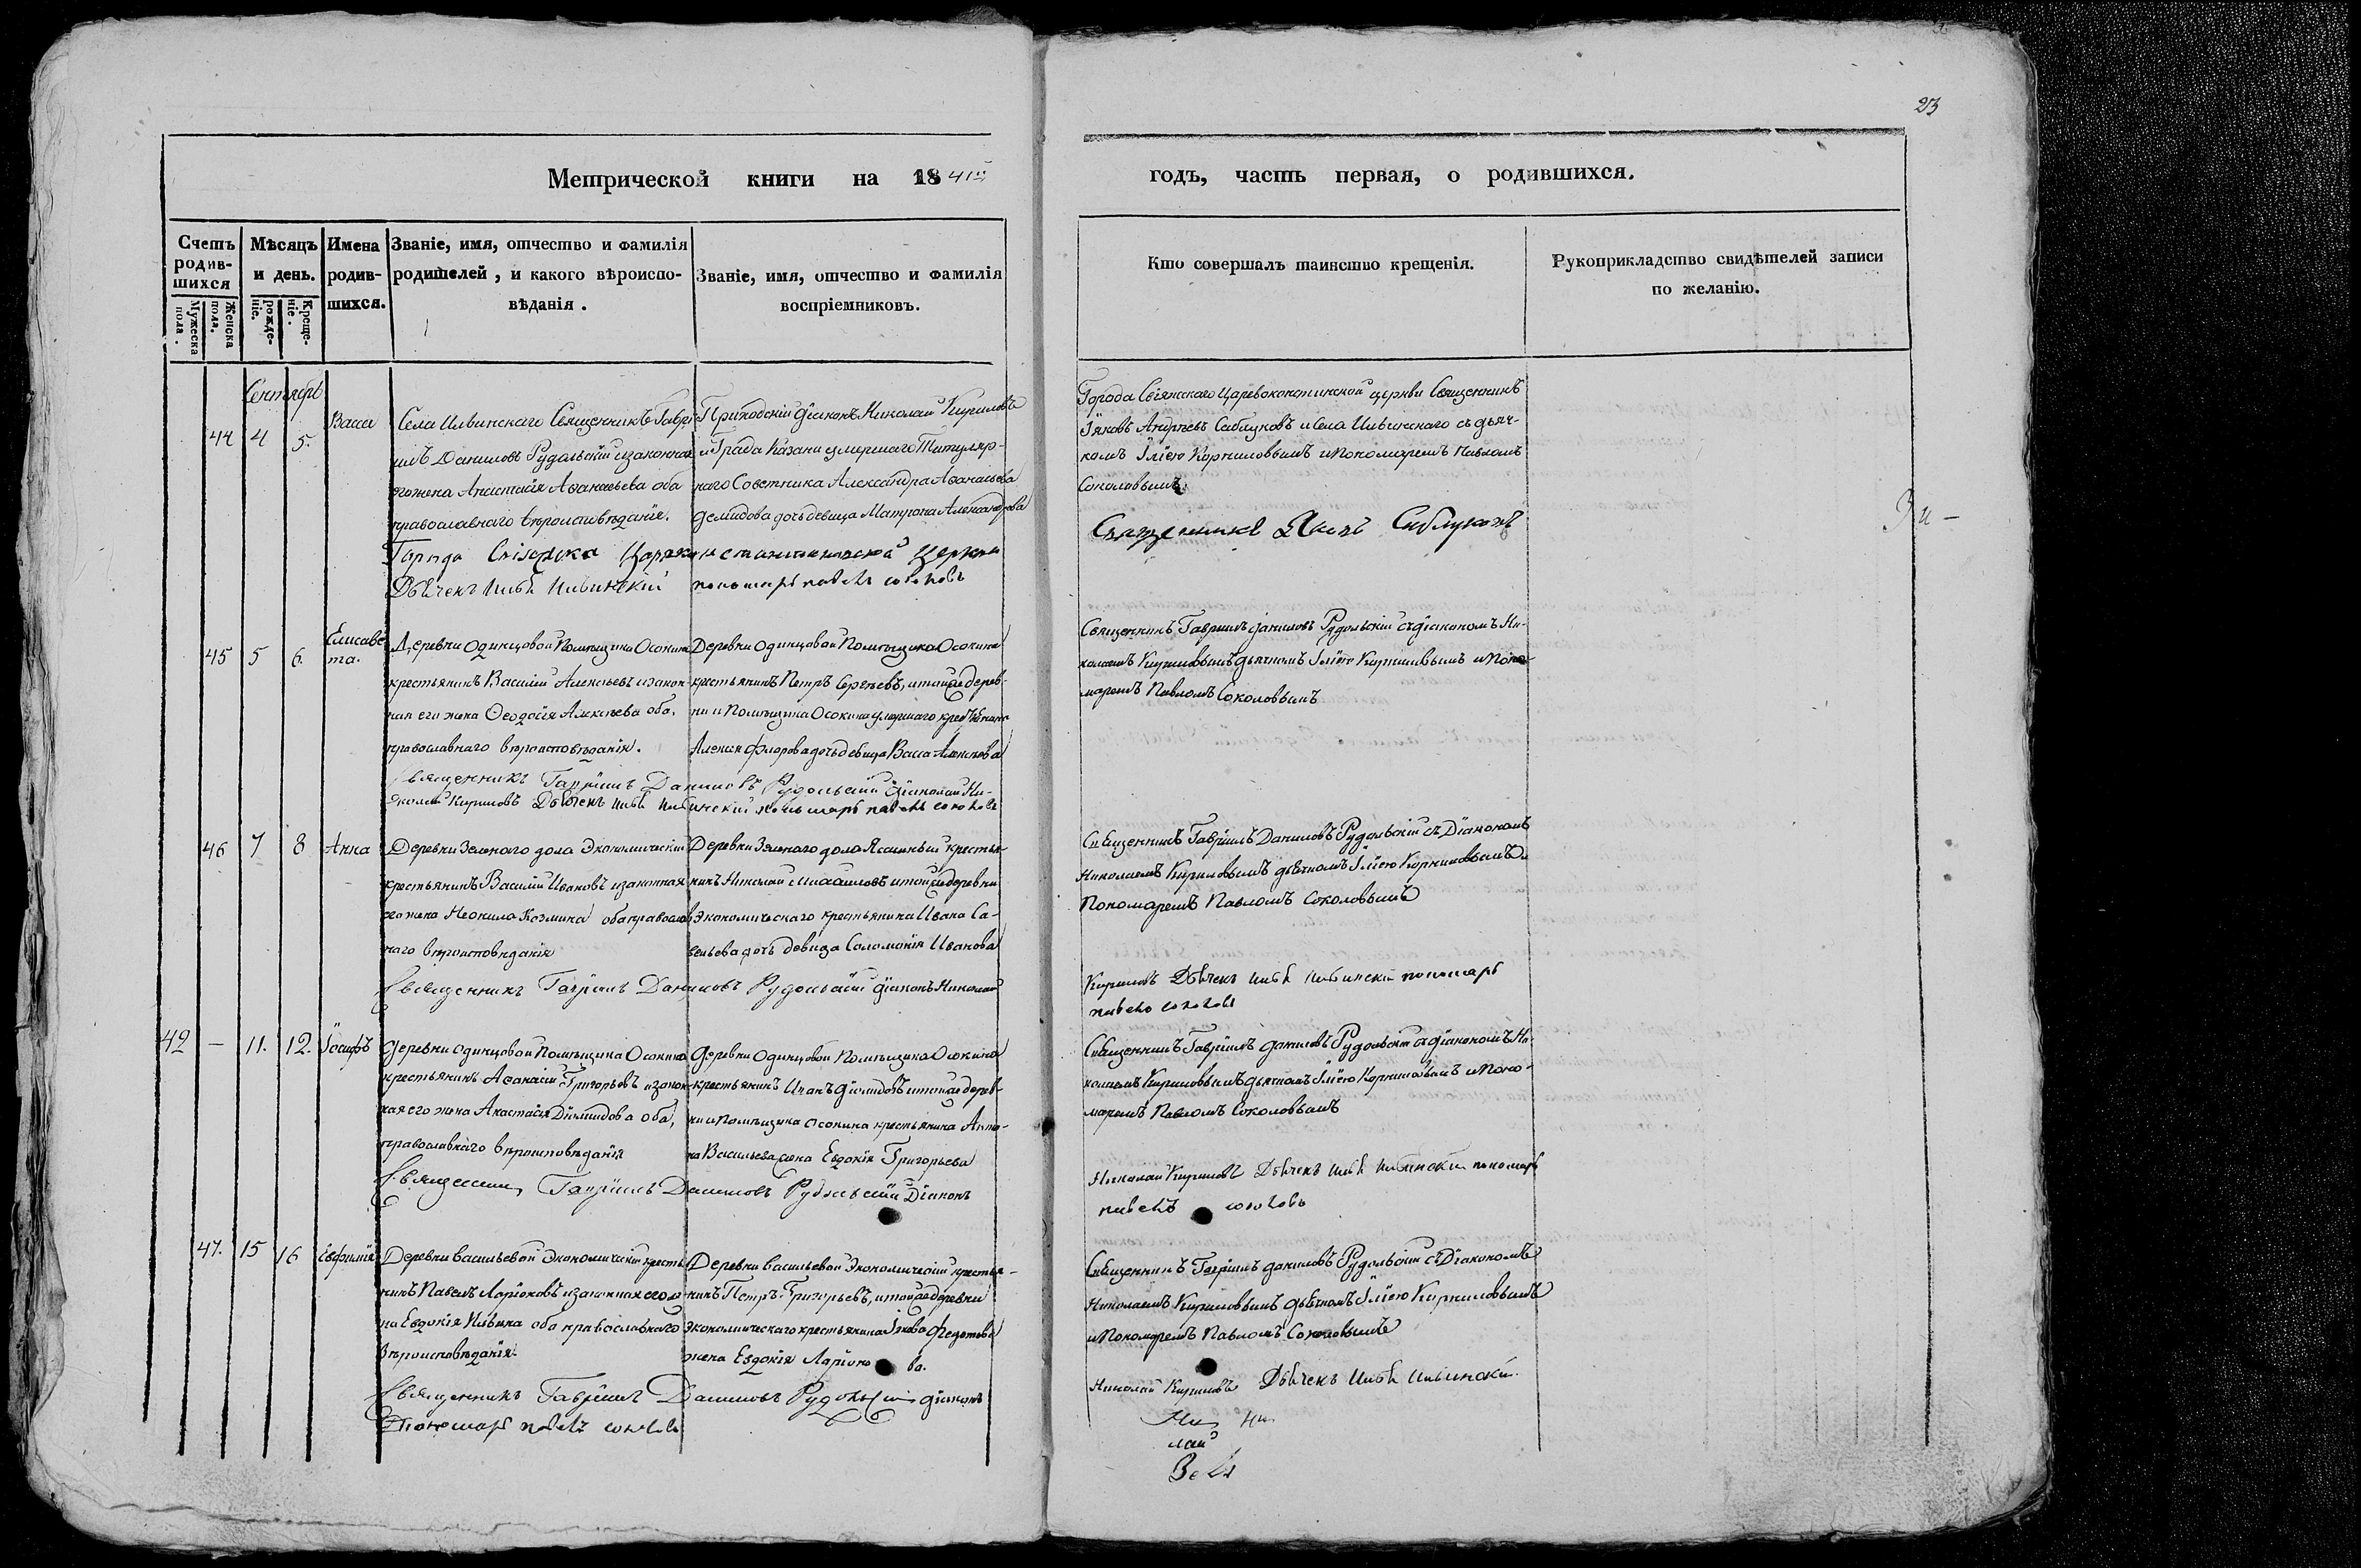 23
Метрической книги на 1841й годъ, часть первая, о родившихся.
Счетъ родив-шихся
Мужеска пола.
Женска пола.
Мѣсяцъ и день.
рожде-ніе.
Креще-ніе.
Имена родив-шихся.
Званіе, имя, отчество и фамилія родителей, и какого вѣроиспо-вѣданія.
Званіе, имя, отчество и фамилія воспріемниковъ.
Кто совершалъ таинство крещенія.
Рукоприкладство свидѣтелей записи по желанію.
Сентябрь
44 4 5. Васса
Села Ильинскаго Священникъ Гаврі-
илъ Даниловъ Рудольскій и законная
его жена Анастасія Аѳанасьева оба
православнаго вѣроисповѣданія.
Приходскій діаконъ Николай Кириловъ
и Града Казани умершаго Титуляр-
наго Советника Александра Аѳанасьева
Демидова дочь девица Матрона Александрова
Города Свіяжскаго Цареконстантиновской церкви
Дьячекъ Илья Ильинскій пономарь павелъ соколовъ
Города Свіяжскаго Царевоконстинской церкви Священникъ
Іяковъ Андреевъ Саблуковъ и Села Ильинскаго съ дьяч-
комъ Іліею Корниловымъ и Пономаремъ Павломъ
Соколовымъ.
Священникъ Яковъ Саблуковъ
45 5 6. Елисаве-
та.
Деревни Одинцовой Помѣщика Осокина
крестьянинъ Василій Алексѣевъ и закон-
ная его жена Ѳеодосія Алексѣева оба,
православнаго вѣроисповѣданія.
Деревни Одинцовой Помѣщика Осокина
крестьянинъ Петръ Сергѣевъ, и тойже дерев-
ни и Помѣщика Осокина умершаго крестьянина
Алексея Флорова дочь девица Васса Алексѣева
Священникъ Гавріилъ Даниловъ Рудольскій Діаконъ Ни-
колай Кириловъ Дьячекъ Илья Ильинскій пономарь павелъ соколовъ
Священникъ Гавріилъ Даниловъ Рудольскій съ діакономъ Ни-
колаемъ Кириловымъ дьячкомъ Іліею Корниловымъ и Поно-
маремъ Павломъ Соколовымъ
46 7 8 Анна
Деревни Зеленаго дола Экономическій
крестьянинъ Василій Ивановъ и законная
его жена Неонила Козмина оба православ-
наго вѣроисповѣданія
Деревни Зеленаго дола крестья-
нинъ Николай Михаиловъ и тойже деревни
Экономическаго крестьянина Ивана Са-
вельева дочь девица Соломонія Иванова
Священникъ Гавріилъ Даниловъ Рудольскій діаконъ Николай
Священникъ Гавріилъ Даниловъ Рудольскій съ Діакономъ
Николаемъ Кириловымъ дьячкомъ Іліею Корниловымъ и
Пономаремъ Павломъ Соколовымъ
Кириловъ Дьячекъ Илья Ильинскій пономарь
павелъ соколовъ
42 — 11. 12. Іосифъ
Деревни Одинцовой Помѣщика Осокина
крестьянинъ Аѳанасій Григорьевъ и закон-
ная его жена Анастасія Діомидова оба,
православнаго вѣроисповѣданія
Деревни Одинцовой Помѣщика Осокина
крестьянинъ Иванъ Діомидовъ и тойже дерев-
ни и Помѣщика Осокина крестьянина Анто-
на Васильева жена Евдокія Григорьева
Священникъ Гавріилъ Даниловъ Рудольскій Діаконъ
Священникъ Гавріилъ Даниловъ Рудольскій съ діакономъ Ни-
колаемъ Кириловымъ дьячкомъ Іліею Корниловымъ и Поно-
маремъ Павломъ Соколовымъ
Николай Кириловъ Дьячекъ Илья Ильинскій пономарь
павелъ соколовъ
47. 15 16 Евфимія
Деревни Васильевой Экономическій кресть-
нинъ Павелъ Ларіоновъ и законная его же-
на Евдокія Ильина оба православнаго
вѣроисповѣданія.
Деревни Васильевой Экономическій крестья-
нинъ Петръ Григорьевъ, и тойже деревни
Экономическаго крестьянина Іякова Федотова
жена Евдокія Ларіонова.
Священникъ Гавріилъ Даниловъ Рудольскій діаконъ
Пономарь павелъ соколовъ
Священникъ Гавріилъ Даниловъ Рудольскій съ Діакономъ
Николаемъ Кириловымъ дьячкомъ Іліею Корниловымъ
и Пономаремъ Павломъ Соколовымъ
Николай Кириловъ Дьячекъ Илья Ильинскій
Ни
лай